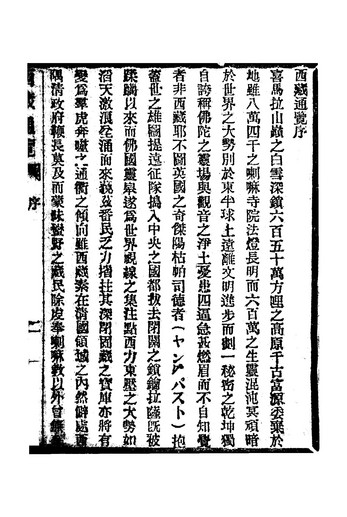 西藏通覽序
喜馬拉山巔之白雪深鎖六百五十萬方哩之高原千古富源委棄於
地雖八萬四千之喇嘛寺院法燈長明而六百萬之生靈混沌冥頑暗
於世界之大勢別於東半球上遠離文明進步而劃一秘密之乾坤獨
自誇稱佛陀之靈場與觀音之淨土憂患四逼急甚燃眉而不自知覺
者非西藏耶不圖英國之奇傑陽枯帕司德者(ヤングバスト)抱
蓋世之雄圖提遠征隊搗入中央之國都救去閉關之鎖鑰拉薩旣被
蹂躪以來而佛國靈皋遂爲世界視線之集注點西力東壓之大勢如
滔天激浪乒涌而來茲番民之力撐拄其深閉固藏之寶庫亦將有
變爲羣虎奔噬之通衢之傾向雖西藏素在清國領域之內然僻處西
隅清政府鞭長莫及而蒙昧蠻野之藏民除虔奉喇嘛敎以外曾
序